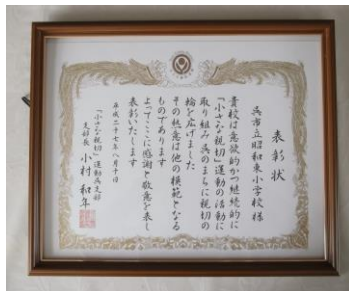 表彰状
呉市立昭和東小学校 様
貴校は意欲的かつ継続的に
「小さな親切」運動の活動に
取り組み 呉のまちに親切の
輪を広げました
その熱意は他の模範となる
ものであります
よってここに感謝と敬意を表し
表彰いたします
平成二十七年八月十日
「小さな親切」運動呉支部
支部長 小村 和年